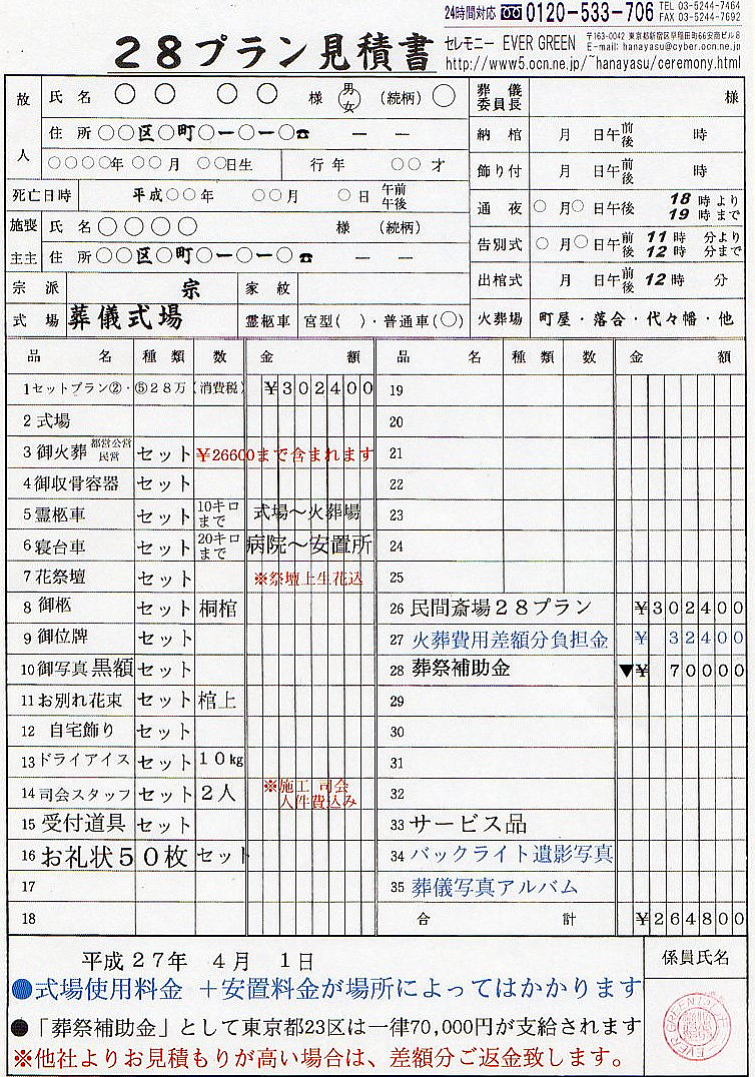 24時間対応 0120-533-706 TEL 03-5244-7464
FAX 03-5244-7692
28プラン見積書 セレモニー EVER GREEN 〒163-0042 東京都新宿区早稲田町66安商ビル8
E-mail: hanayasu@cyber.ocn.ne.jp
http://www5.ocn.ne.jp/~hanayasu/ceremony.html
故人 氏名 ○ ○ ○ ○ 様 男 女 (続柄) ○
住所 ○○区○町○ー○ー○☎ ー ー
○○○○年 ○○月 ○○日生 行年 ○○才
死亡日時 平成○○年 ○○月 ○日 午前 午後
施主 喪主 氏名 ○○○○ 様 (続柄)
住所 ○○区○町○ー○ー○ ☎ ー ー
宗派 宗 家紋
式場 葬儀式場 霊柩車 宮型( )・普通車(○)
葬儀委員長 様
納棺 月 日午前後 時
飾り付 月 日午前後 時
通夜 ○月○日午後 18時より 19時まで
告別式 ○月○日午前後 11時 分より 12時 分まで
出棺式 月 日午前後 12時 分
火葬場 町屋・落合・代々幡・他
品名 種類 数 金額 品名 種類 数 金額
1セットプラン②・⑤28万(消費税) ¥302400
2 式場
3 御火葬 都営公営 民営 セット ¥26600まで含まれます
4 御収骨容器 セット
5 霊柩車 セット 10キロまで 式場～火葬場
6 寝台車 セット 20キロまで 病院～安置所
7 花祭壇 セット ※祭壇上生花込
8 御柩 セット 桐棺
9 御位牌 セット
10御写真 黒額 セット
11お別れ花束 セット 棺上
12 自宅飾り セット
13ドライアイス セット 10kg
14 司会スタッフ セット 2人 ※施工 司会 人件費込み
15 受付道具 セット
16 お礼状50枚 セット
17
18
19
20
21
22
23
24
25
26 民間斎場28プラン ¥302400
27 火葬費用差額分負担金 ¥ 32400
28 葬祭補助金 ▼¥ 70000
29
30
31
32
33 サービス品
34 バックライト遺影写真
35 葬儀写真アルバム
合計 ¥264800
平成27年 4月 1日 係員氏名
●式場使用料金 +安置料金が場所によってはかかります
●「葬祭補助金」として東京都23区は一律70,000円が支給されます
※他社よりお見積もりが高い場合は、差額分ご返金致します。
EVER GREEN